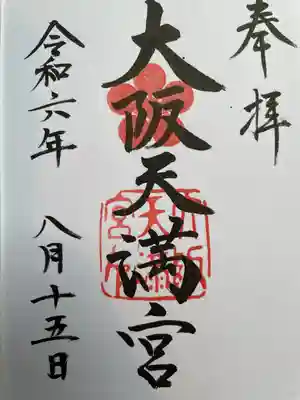 奉拝
大阪天満宮
令和六年 八月十五日